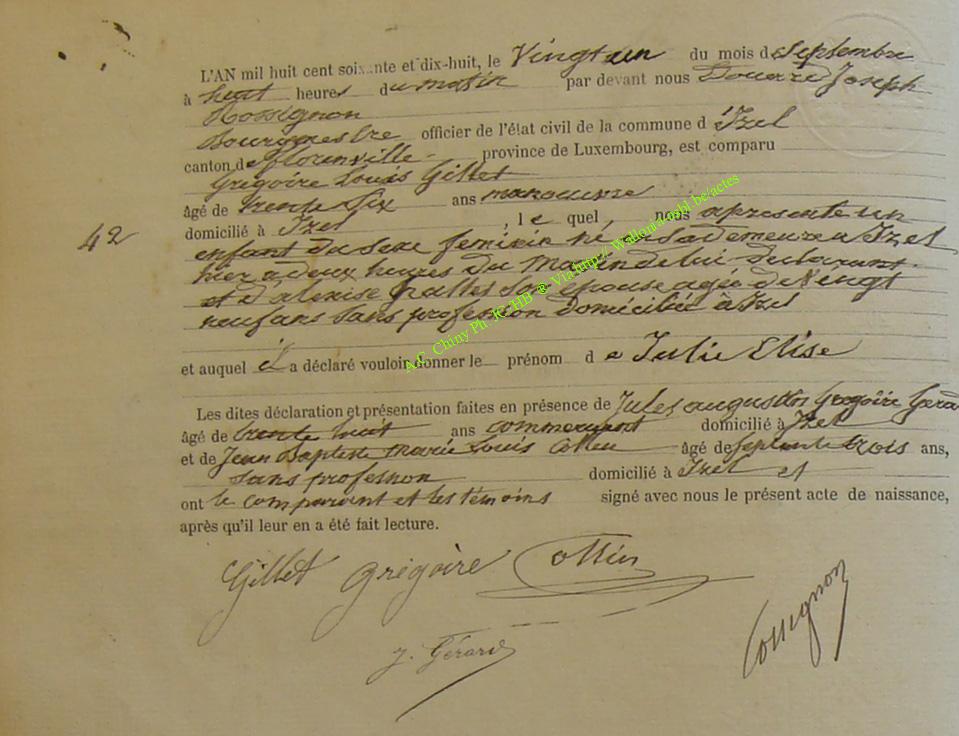 L'AN mil huit cent soixante et dix-huit, le Vingt un du mois de Septembre
à huit heures du matin par devant nous Douard Joseph
Rossignon
Bourgmestre officier de l'état civil de la commune d'Izel
canton de florenville province de Luxembourg, est comparu
Grégoire Louis Gillet
âgé de trente six ans manoeuvre
domicilié à Izel, le quel, nous a présenté un
42
enfant du sexe feminin né en sa demeure a Izel
hier a deux heures du matin de lui declarant
et d'alexise son épouse agée de Vingt
neuf ans sans profession domiciliée à Izel
et auquel il a déclaré vouloir donner le prénom de Julie Elise
Les dites déclaration et présentation faites en présence de Jules Grégoire
âgé de trente huit ans commercant domicilié à Izel
et de Jean Baptiste Marie Louis âgé de septente trois ans,
sans profession domicilié à Izel et
ont le comparant et les témoins signé avec nous le présent acte de naissance,
après qu'il leur en a été fait lecture.
Gillet Grégoire
J. Gérard
Rossignon
A.C. Chiny Ph. KaHB @ Via http:// Wallonia asbl be/actes